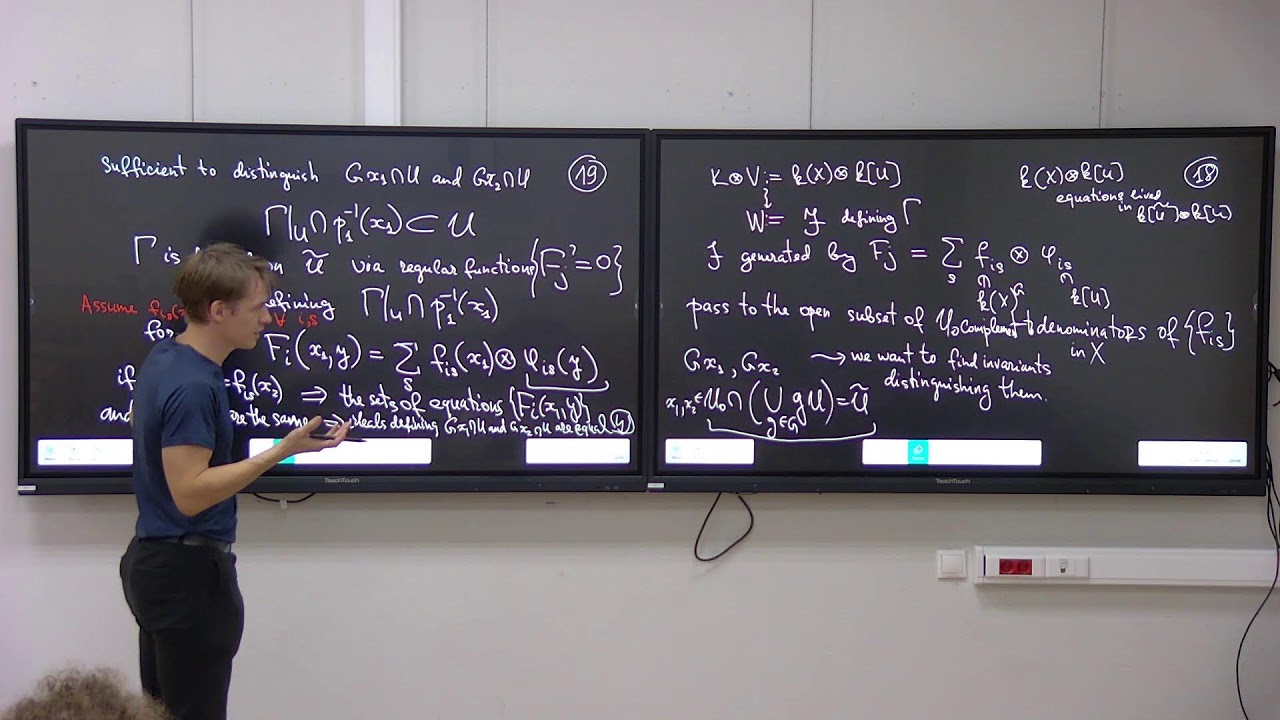 Sufficient to distinguish Gx₁∩U and Gx₂∩U ⑲
Γ|_U ∩ p₁⁻¹(x₁) ⊂ U
Γ is on Ũ via regular functions {F_j = 0}
Assume ∀ i,s
defining Γ|_U ∩ p₁⁻¹(x₁)
for
F_i(x₁,y) = Σ_s f_is(x₁) ⊗ φ_is(y)
if = f_is(x₂) ⇒ the sets of equations {F_i(x₁,y)}
and are the same ⇒ ideals defining Gx₁∩U and Gx₂∩U are equal
TeachTouch
K⊗V := k(X)⊗k[U] k(X)⊗k[U] ⑱
equations lived
in k[Ũ]⊗k[U]
W := J defining Γ
J generated by F_j = Σ_s f_is ⊗ φ_is
k(X)^G k[U]
pass to the open subset of U₀ complement to denominators of {f_is}
in X
Gx₁, Gx₂ → we want to find invariants
distinguishing them.
x₁,x₂ ∈ U₀ ∩ (⋃_{g∈G} gU) = Ũ
TeachTouch